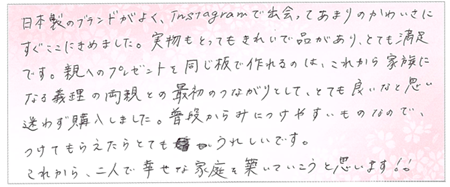 日本製のブランドがよく、Instagramで出会ってあまりのかわいさに
すぐここにきめました。実物もとってもきれいで品があり、とても満足
です。親へのプレゼントを同じ板で作れるのは、これから家族に
なる義理の両親との最初のつながりとして、とても良いなと思い
迷わず購入しました。普段からみにつけやすいものなので、
つけてもらえたらとてもうれしいです。
これから、二人で幸せな家庭を築いていこうと思います!!